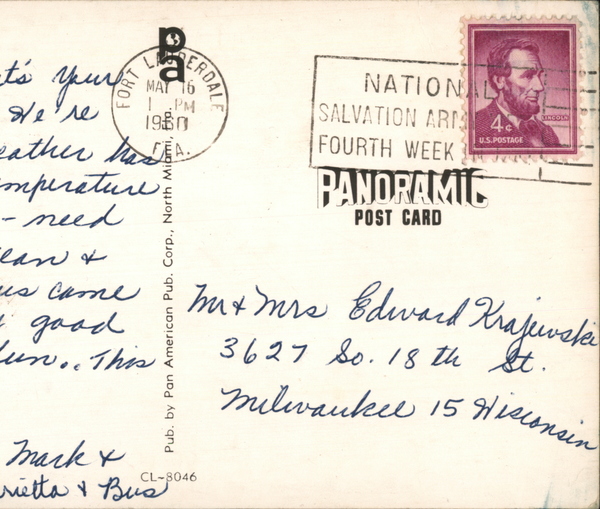 pa
FORT LAUDERDALE
MAY 16
1 PM
1960
FLA.
NATIONAL
SALVATION ARM
FOURTH WEEK
LINCOLN
4¢
U.S. POSTAGE
PANORAMIC
POST CARD
your
We're
eather has
mperature
- need
ean +
us came
good
fun.. This
Mark +
rietta + Bus
Pub. by Pan American Pub. Corp., North Miami, Fla.
Mr + Mrs Edward Krajewski
3627 So. 18 th St.
Milwaukee 15 Wisconsin
CL-8046